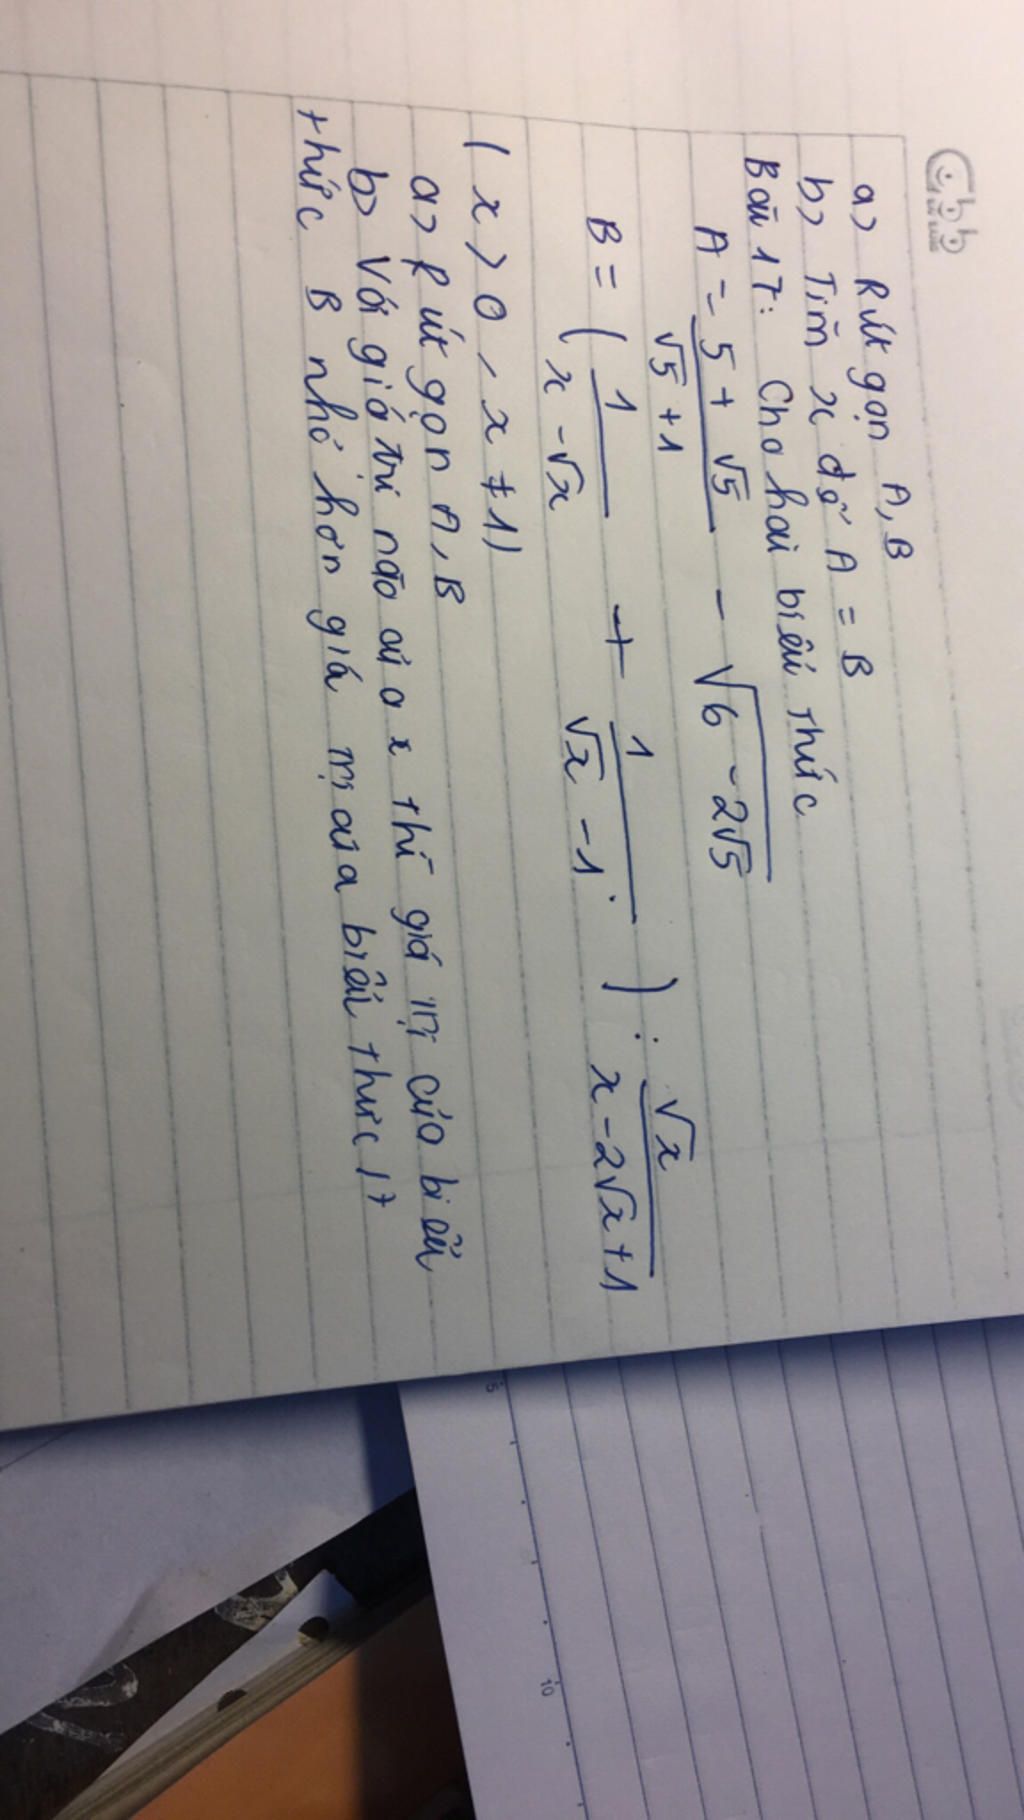 a> Rút gọn A, B
b> Tìm x để A = B
Bài 17: Cho hai biểu thức
A = (5 + √5)/(√5 + 1) - √(6 - 2√5)
B = (1/(x - √x) + 1/(√x - 1)) : √x/(x - 2√x + 1)
(x > 0, x ≠ 1)
a> Rút gọn A, B
b> Với giá trị nào của x thì giá trị của biểu
thức B nhỏ hơn giá trị của biểu thức 17
5
10